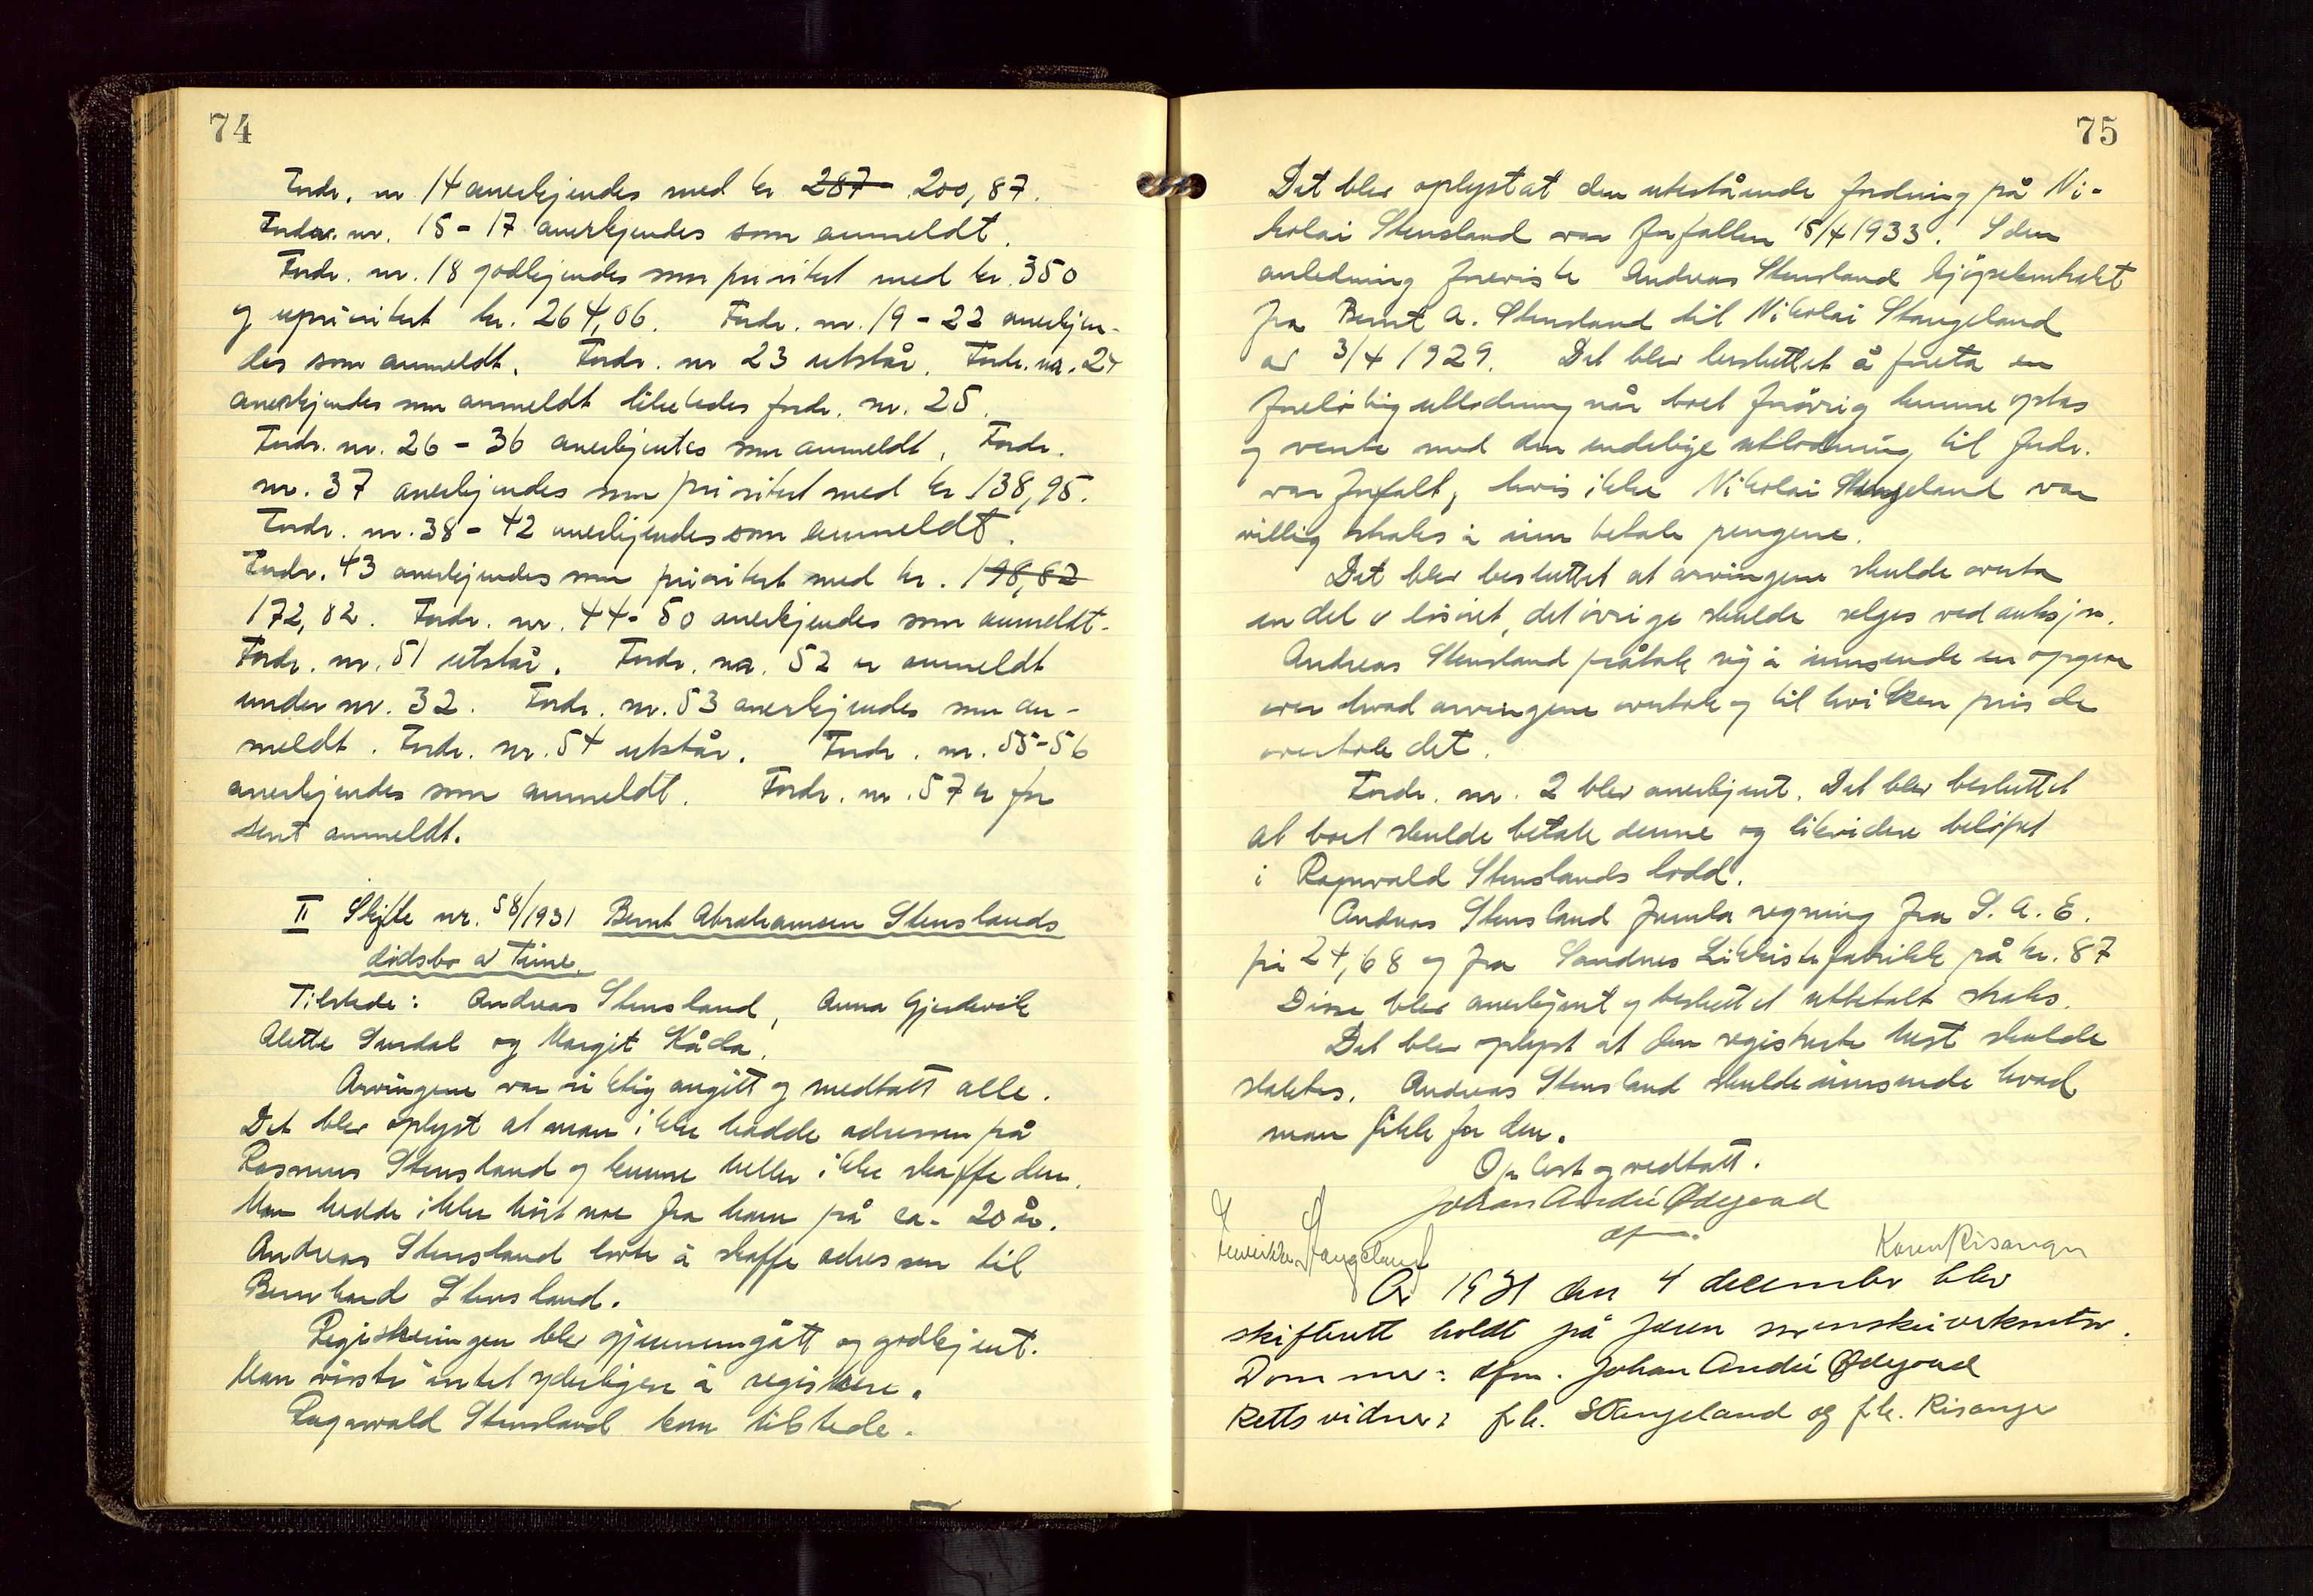 74
Fordr. nr 14 anerkjendes med kr 287 200,87.
Fordr. nr. 15 - 17 anerkjendes som anmeldt.
Fordr. nr. 18 godkjendes som prioritert med kr. 350
og uprioritert kr. 264,06. Fordr. nr. 19 - 22 anerkjen-
des som anmeldt. Fordr. nr 23 utstår. Fordr. nr. 24
anerkjendes som anmeldt likeledes fordr. nr. 25.
Fordr. nr. 26 - 36 anerkjentes som anmeldt. Fordr.
nr. 37 anerkjendes som prioritert med kr 138,95.
Fordr. nr. 38 - 42 anerkjendes som anmeldt.
Fordr. 43 anerkjendes som prioritert med kr. 198,82
172,82. Fordr. nr. 44 - 50 anerkjendes som anmeldt.
Fordr. nr. 51 utstår. Fordr. nr. 52 er anmeldt
under nr. 32. Fordr. nr. 53 anerkjendes som an-
meldt. Fordr. nr. 54 utstår. Fordr. nr. 55-56
anerkjendes som anmeldt. Fordr. nr. 57 er for
sent anmeldt.
II Skifte nr. 58/1931 Bernt Abrahamsen Stenslands
dødsbo av Time.
Tilstede: Andreas Stensland, Anna Gjedrevik
Alette Surdal og Margit Kåda.
Arvingene var riktig angitt og medtatt alle.
Det blev oplyst at man ikke hadde adressen på
Rasmus Stensland og kunne heller ikke skaffe den.
Man hadde ikke hørt noe fra ham på ca. 20 år.
Andreas Stensland lovte å skaffe adressen til
Bernhard Stensland.
Registreringen blev gjennemgått og godkjent.
Man visste intet yderligere å registrere.
Ragnvald Stensland kom tilstede.
75
Det blev oplyst at den utestående fordring på Ni-
kolai Stensland var forfallen 15/4 1933. I den
anledning foreviste Andreas Stensland kjøpekontrakt
fra Bernt A. Stensland til Nikolai Stangeland
av 3/4 1929. Det blev besluttet å foreta en
foreløbig utlodning når boet forøvrig kunne optas
og vente med den endelige utlodning til fordr.
var forfalt, hvis ikke Nikolai Stangeland var
villig straks å inn betale pengene.
Det blev besluttet at arvingene skulde overta
en del av løsøret, det øvrige skulde selges ved auksjon.
Andreas Stensland påtok sig å innsende en opgave
over hvad arvingene overtok og til hvilken pris de
overtok det.
Fordr. nr. 2 blev anerkjent. Det blev besluttet
at boet skulde betale denne og likvidere beløpet
i Ragnvald Stenslands lodd.
Andreas Stensland fremla regning fra S. A. E.
på 24,68 og fra Sandnes Likkistefabrikk på kr. 87
Disse blev anerkjent og besluttet utbetalt straks.
Det blev oplyst at den registrerte hest skulde
slaktes. Andreas Stensland skulde innsende hvad
man fikk for den.
Oplest og vedtatt.
Johan André Ødegaard
dfm.
Stangeland
Karen Risanger
År 1931 den 4 december blev
skifterett holdt på Jæren sorenskriverkontor.
Dommer: dfm. Johan André Ødegaard
Rettsvidner: frk. Stangeland og frk. Risanger